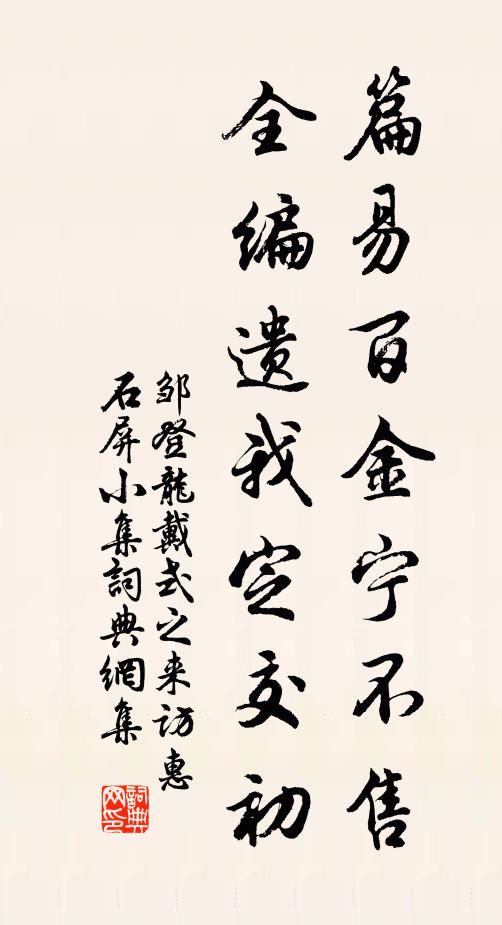 篇易百金宁不售
全编遗我定交初
邹登龍戴式之来访惠
石屏小集詞典網集
詞典网印